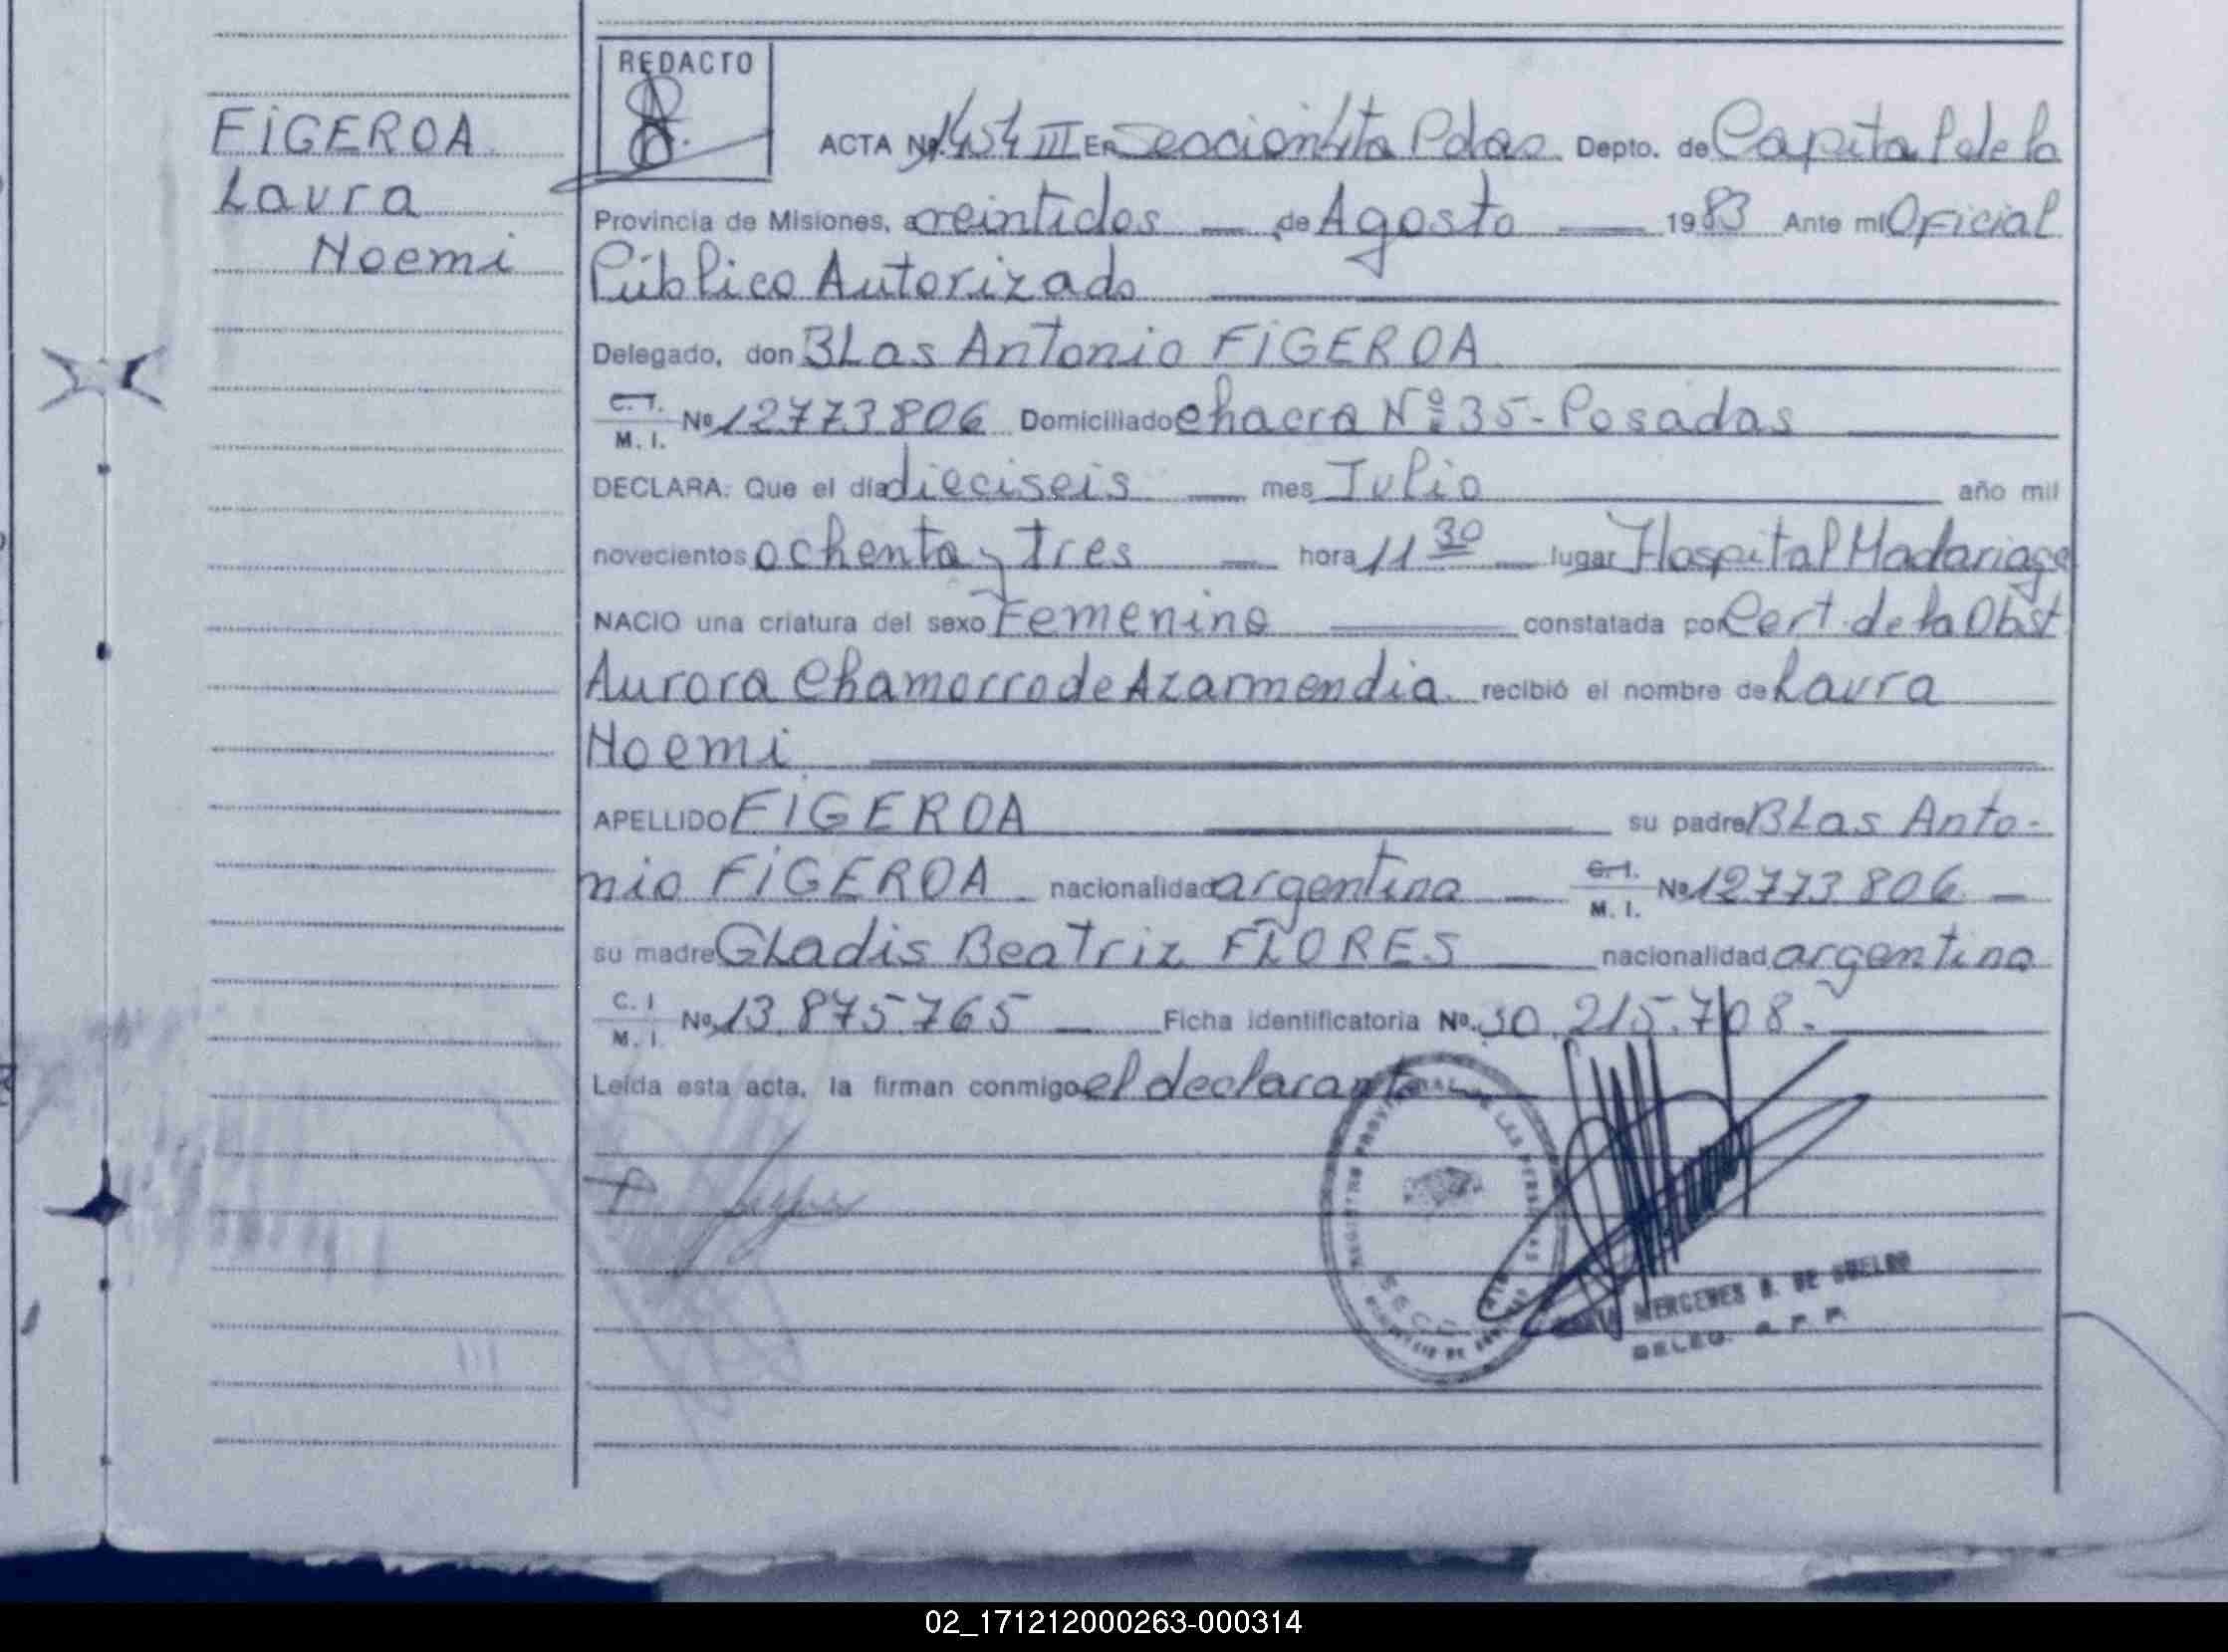 REDACTO
FIGEROA
Laura
Noemi
ACTA Nº 1454 III En Sección 4ta Pdas. Depto. de Capital de la
Provincia de Misiones, a veintidos de Agosto 1983 Ante mí Oficial
Público Autorizado
Delegado, don BLas Antonio FIGEROA
C. I.
M. I. Nº 12773806 Domiciliado chacra Nº 35 - Posadas
DECLARA: Que el día dieciseis mes Julio año mil
novecientos ochenta y tres hora 11 30 lugar Hospital Madariaga
NACIO una criatura del sexo Femenino constatada por Cert. de la Obst
Aurora Chamorro de Azarmendia recibió el nombre de Laura
Noemi
APELLIDO FIGEROA su padre BLas Anto-
nio FIGEROA nacionalidad argentina C. I. M. I. Nº 12773806
su madre GLadis Beatriz FLORES nacionalidad argentina
C. I
M. I. Nº 13.875.765 Ficha identificatoria Nº 30.215.708.
Leída esta acta, la firman conmigo el declarante
REGISTRO PROVINCIAL DE LAS PERSONAS
DE SUELDO
DELEG. R. P. P.
02_171212000263-000314